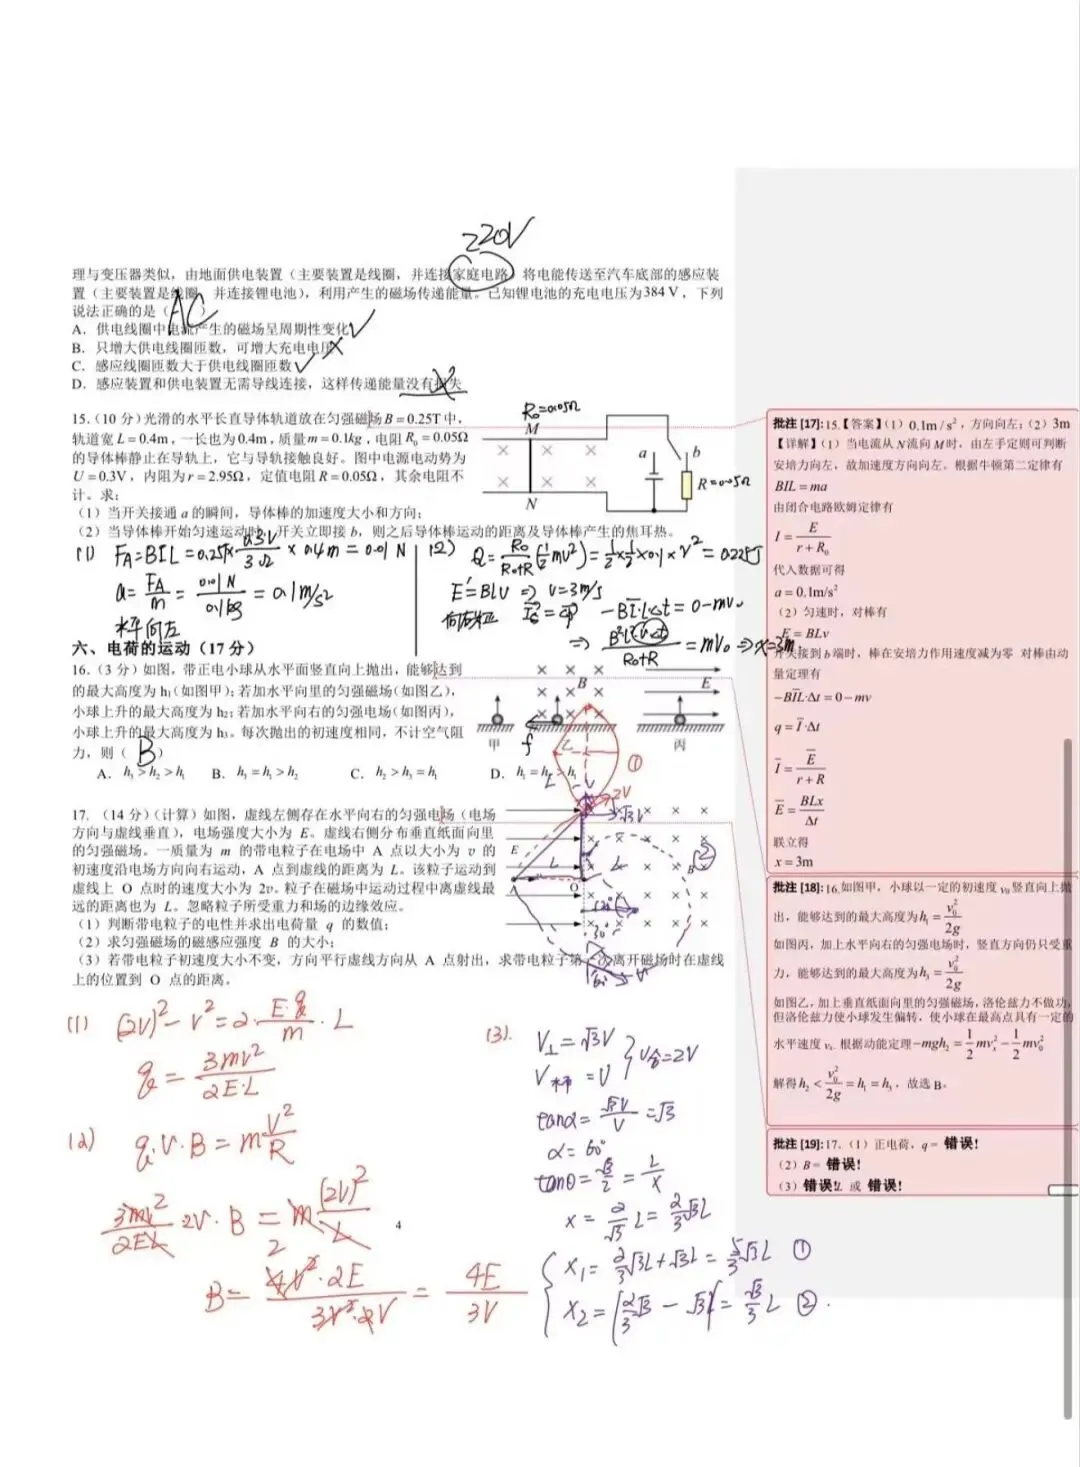 220V
理与变压器类似，由地面供电装置（主要装置是线圈，并连接家庭电路）将电能传送至汽车底部的感应装
置（主要装置是线圈，并连接锂电池），利用产生的磁场传递能量。已知锂电池的充电电压为384 V，下列
说法正确的是（AC）
A．供电线圈中电流产生的磁场呈周期性变化 ✓
B．只增大供电线圈匝数，可增大充电电压 ×
C．感应线圈匝数大于供电线圈匝数 ✓
D．感应装置和供电装置无需导线连接，这样传递能量没有损失 ×
15.（10 分）光滑的水平长直导体轨道放在匀强磁场 B＝0.25T 中，
轨道宽 L＝0.4m，一长也为0.4m，质量 m＝0.1kg，电阻 R₀＝0.05Ω
的导体棒静止在导轨上，它与导轨接触良好。图中电源电动势为
U＝0.3V，内阻为 r＝2.95Ω，定值电阻 R＝0.05Ω，其余电阻不
计。求：
（1）当开关接通 a 的瞬间，导体棒的加速度大小和方向；
（2）当导体棒开始匀速运动时，开关立即接 b，则之后导体棒运动的距离及导体棒产生的焦耳热。
R₀=0.05Ω
M
N
a
b
R=0.05Ω
(1) F_A=BIL=0.25T×0.3V/3Ω×0.4m=0.01N
a=F_A/m=0.01N/0.1kg=0.1m/s²
水平向左
(2) Q=R₀/(R₀+R)(½mv²)=½×½×0.1×v²=0.225J
E'=BLV ⇒ V=3m/s
-BĪL·Δt=0-mv₀
⇒ B²L²·v·Δt/(R₀+R)=mV₀⇒x=3m
六、电荷的运动（17 分）
16.（3 分）如图，带正电小球从水平面竖直向上抛出，能够达到
的最大高度为 h₁（如图甲）；若加水平向里的匀强磁场（如图乙），
小球上升的最大高度为 h₂；若加水平向右的匀强电场（如图丙），
小球上升的最大高度为 h₃。每次抛出的初速度相同，不计空气阻
力，则（B）
A．h₃＞h₂＞h₁ B．h₃＝h₁＞h₂ C．h₂＞h₃＝h₁ D．h₁＝h₂＞h₃
B
E
甲
乙
丙
f
17．（14 分）（计算）如图，虚线左侧存在水平向右的匀强电场（电场
方向与虚线垂直），电场强度大小为 E。虚线右侧分布垂直纸面向里
的匀强磁场。一质量为 m 的带电粒子在电场中 A 点以大小为 v 的
初速度沿电场方向向右运动，A 点到虚线的距离为 L。该粒子运动到
虚线上 O 点时的速度大小为 2v。粒子在磁场中运动过程中离虚线最
远的距离也为 L。忽略粒子所受重力和场的边缘效应。
（1）判断带电粒子的电性并求出电荷量 q 的数值；
（2）求匀强磁场的磁感应强度 B 的大小；
（3）若带电粒子初速度大小不变，方向平行虚线方向从 A 点射出，求带电粒子第一次离开磁场时在虚线
上的位置到 O 点的距离。
①
2V
√3V
②
E
A
L
O
B
(1) (2V)²-V²=2·E·q/m·L
q=3mv²/2E·L
(2) q·V·B=mV²/R
3mv²/2EL 2V·B=m(2V)²/L
B=4V²·2E/3V²·2V=4E/3V
(3). V⊥=√3V
V水平=V
V合=2V
tanα=√3V/V=√3
α=60°
tanθ=√3/2=L/x
x=2/√3L=2/3√3L
x₁=2/3√3L+√3L=5/3√3L ①
x₂=|2/3√3-√3|=√3/3L ②.
4
批注 [17]: 15.【答案】（1）0.1m/s²，方向向左；（2）3m
【详解】（1）当电流从 N流向 M 时，由左手定则可判断
安培力向左，故加速度方向向左。根据牛顿第二定律有
BIL＝ma
由闭合电路欧姆定律有
I＝E/(r+R₀)
代入数据可得
a＝0.1m/s²
（2）匀速时，对棒有
E＝BLv
开关接到 b 端时，棒在安培力作用速度减为零 对棒由动
量定理有
−BĪL·Δt＝0−mv
q＝Ī·Δt
Ī＝Ē/(r+R)
Ē＝BLx/Δt
联立得
x＝3m
批注 [18]: 16.如图甲，小球以一定的初速度 v₀ 竖直向上抛
出，能够达到的最大高度为h₁＝v₀²/2g
如图丙，加上水平向右的匀强电场时，竖直方向仍只受重
力，能够达到的最大高度为h₃＝v₀²/2g
如图乙，加上垂直纸面向里的匀强磁场，洛伦兹力不做功，
但洛伦兹力使小球发生偏转，使小球在最高点具有一定的
水平速度 vₓ. 根据动能定理−mgh₂＝½mvₓ²−½mv₀²
解得h₂＜v₀²/2g＝h₁＝h₃，故选 B。
批注 [19]: 17.（1）正电荷，q＝ 错误!
（2）B＝ 错误!
（3）错误!L 或 错误!